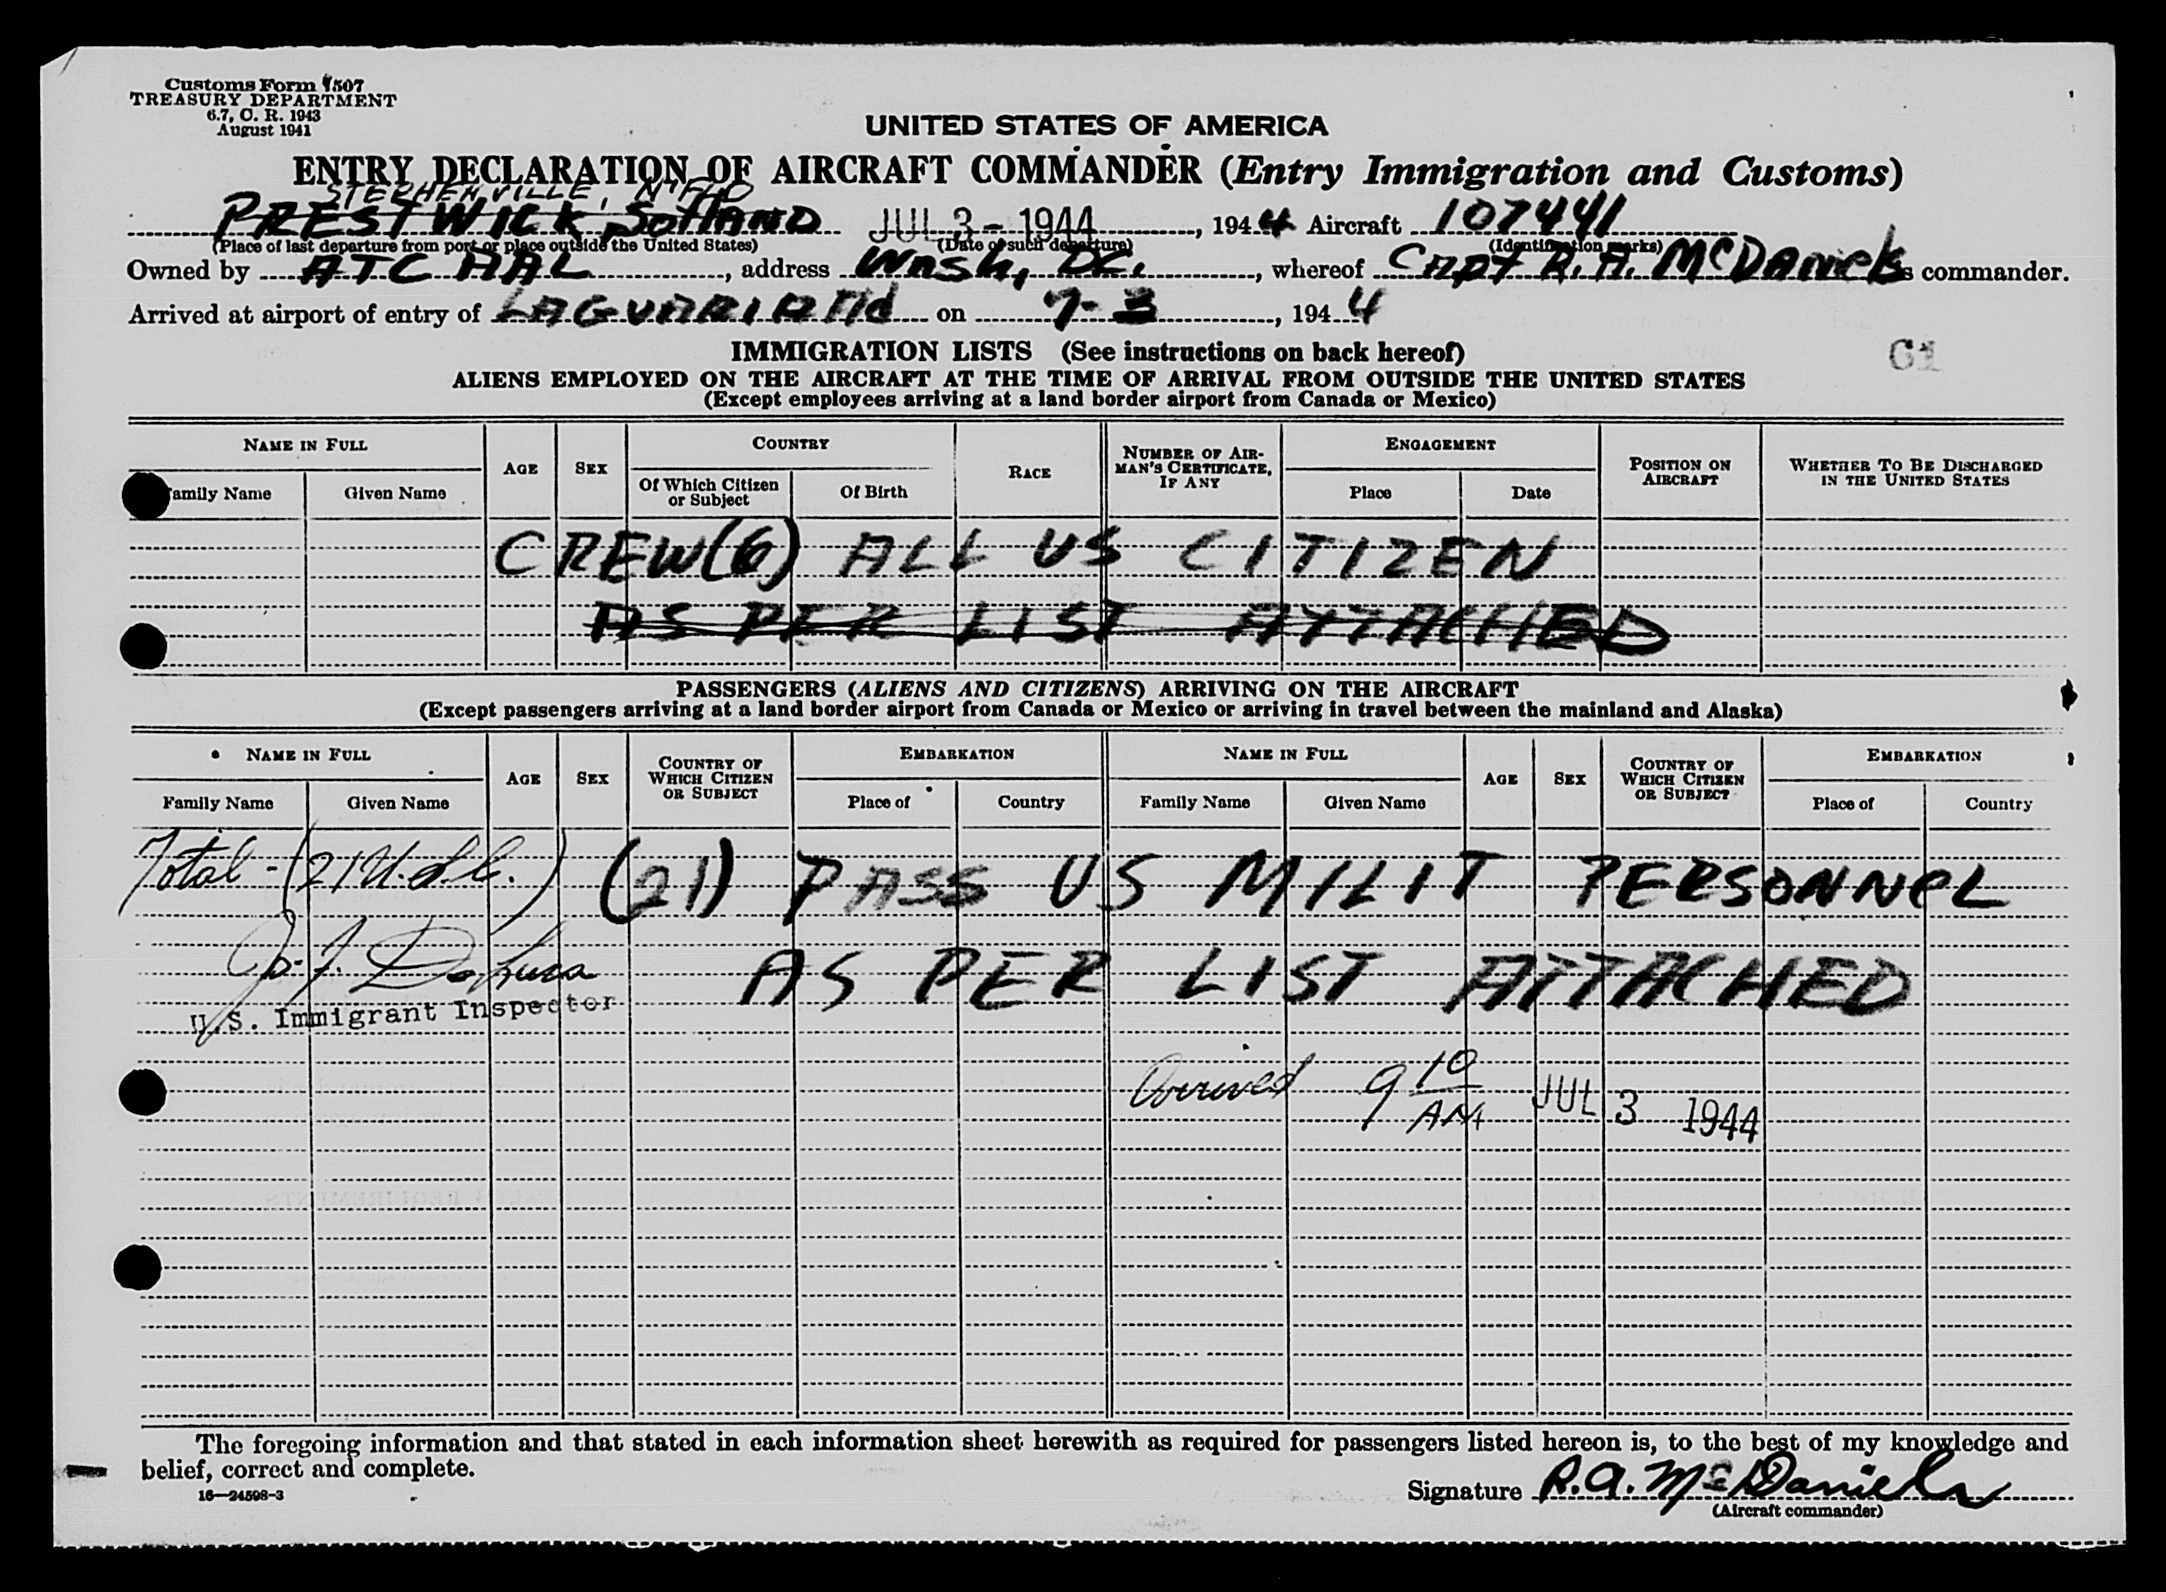 Customs Form 7507
TREASURY DEPARTMENT
6.7, C. R. 1943
August 1941
UNITED STATES OF AMERICA
ENTRY DECLARATION OF AIRCRAFT COMMANDER (Entry Immigration and Customs)
STEPHENVILLE, N'FLD
PRESTWICK, SOTLAND JUL 3 - 1944, 1944 Aircraft 107441
(Place of last departure from port or place outside the United States) (Date of such departure) (Identification marks)
Owned by ATC AAL, address Wash, DC., whereof Capt R. A. McDaniels is commander.
Arrived at airport of entry of LAGUARIA Fld on 7-3, 1944
IMMIGRATION LISTS (See instructions on back hereof)
61
ALIENS EMPLOYED ON THE AIRCRAFT AT THE TIME OF ARRIVAL FROM OUTSIDE THE UNITED STATES
(Except employees arriving at a land border airport from Canada or Mexico)
NAME IN FULL AGE SEX COUNTRY RACE NUMBER OF AIRMAN'S CERTIFICATE, IF ANY ENGAGEMENT POSITION ON AIRCRAFT WHETHER TO BE DISCHARGED IN THE UNITED STATES
Family Name Given Name Of Which Citizen or Subject Of Birth Place Date
CREW (6) ALL US CITIZEN
AS PER LIST ATTACHED
PASSENGERS (ALIENS AND CITIZENS) ARRIVING ON THE AIRCRAFT
(Except passengers arriving at a land border airport from Canada or Mexico or arriving in travel between the mainland and Alaska)
NAME IN FULL AGE SEX COUNTRY OF WHICH CITIZEN OR SUBJECT EMBARKATION NAME IN FULL AGE SEX COUNTRY OF WHICH CITIZEN OR SUBJECT EMBARKATION
Family Name Given Name Place of Country Family Name Given Name Place of Country
Total - (21 U.S.C.) (21) PASS US MILIT PERSONNEL
AS PER LIST ATTACHED
U.S. Immigrant Inspector
Arrived 9 10 AM JUL 3 1944
The foregoing information and that stated in each information sheet herewith as required for passengers listed hereon is, to the best of my knowledge and
belief, correct and complete.
16—24598-3
Signature R. A. McDaniels
(Aircraft commander)